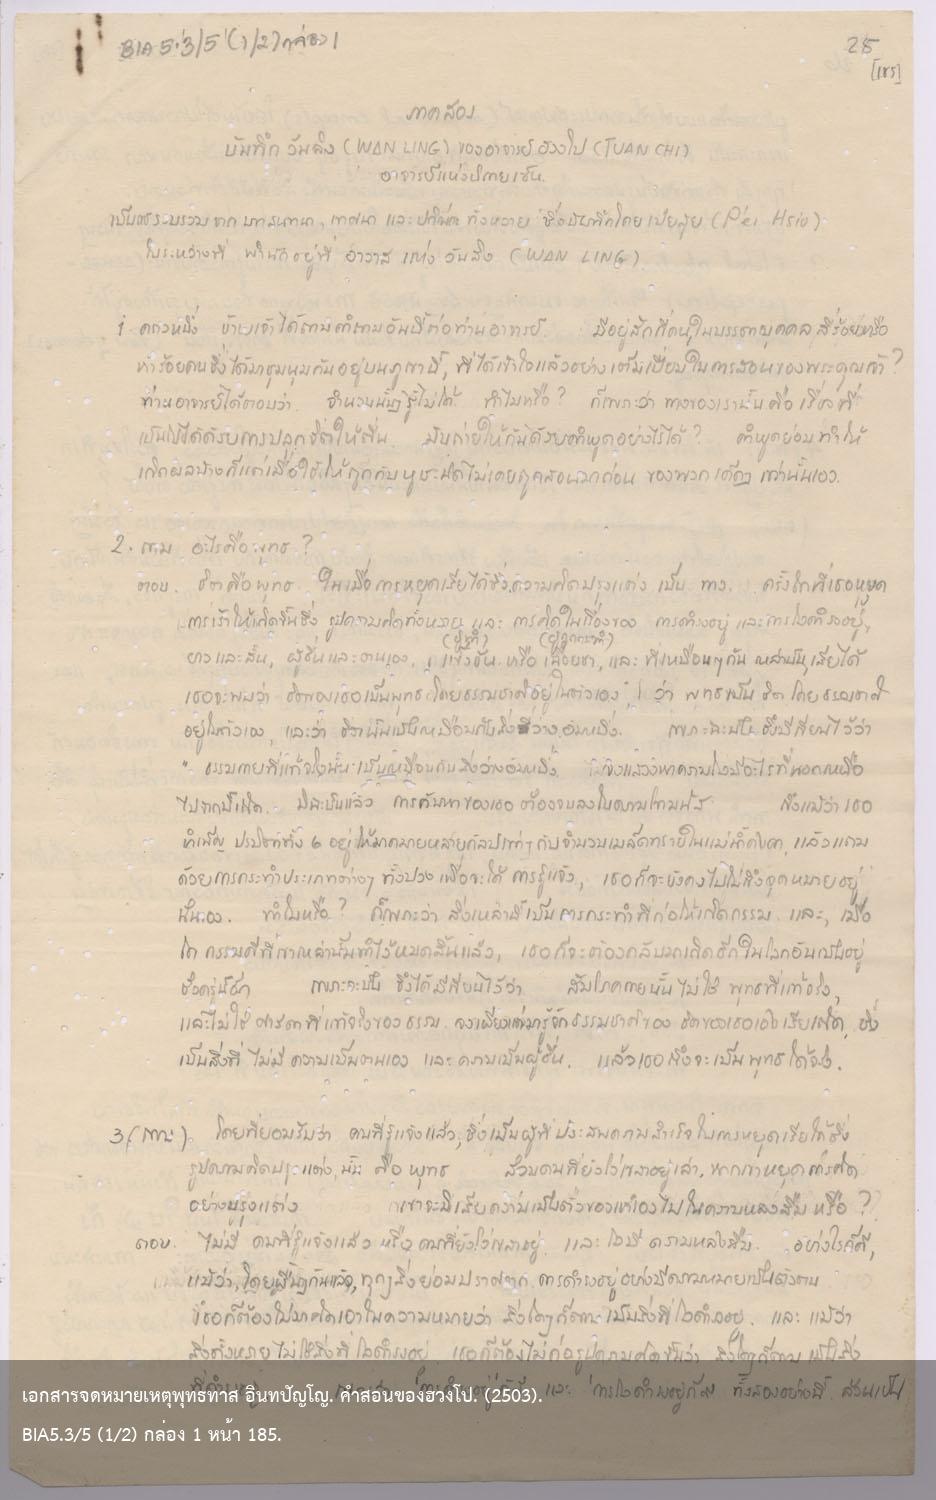 BIA 5.3/5 (1/2) กล่อง 1
25
[185]
ภาคสอง
บันทึก วันลิง (WAN LING) ของอาจารย์ฮวงโป (TUAN CHI)
อาจารย์แห่งนิกายเซ็น.
เป็นการรวบรวมจาก บทสนทนา, เทศนา และ ทั้งหลาย ซึ่งบันทึกโดยเป่ยสุย (P'ei Hsiu)
ในระหว่างที่ พำนักอยู่ที่ อาวาส แห่งวันลิง (WAN LING).
1 ครั้งหนึ่ง ข้าพเจ้าได้ถามคำถามอันนี้ต่อท่านอาจารย์. มีอยู่สักกี่คน, ในบรรดาบุคคล สี่ร้อยหรือ
ห้าร้อยคนซึ่งได้มาชุมนุมกันอยู่บนภูเขานี้, ที่ได้เข้าใจแล้วอย่างเต็มเปี่ยมในการสอนของพระคุณเจ้า?
ท่านอาจารย์ได้ตอบว่า. จำนวนนั้นรู้ไม่ได้. ทำไมหรือ? ก็เพราะว่า ทางของเรานั้น คือ เรื่องที่
เป็นไปได้ด้วยการปลุกจิตให้ตื่น. มันถ่ายให้กันด้วยคำพูดอย่างไรได้? คำพูดย่อมทำให้
เกิดผลบ้างก็แต่เมื่อใช้ให้ถูกกับหูซึ่งไม่เคยถูกสอนมาก่อน ของพวกเด็กๆ เท่านั้นเอง.
2. ถาม อะไรคือพุทธ?
ตอบ. จิตคือพุทธ ในเมื่อการหยุดเสียได้ซึ่งความคิดปรุงแต่ง เป็น ทาง. ครั้งใดที่เธอหยุด
การเร้าให้เกิดขึ้นซึ่ง รูปความคิดทั้งหลาย และ การคิดในเรื่องของ การดำรงอยู่ และการไม่ดำรงอยู่,
(ผู้ทำ) (ผู้ถูกกระทำ)
ยาวและสั้น, ผู้อื่นและตนเอง, หรือ เฉื่อยชา, และ ที่เหมือนๆกัน เหล่านั้นเสียได้
เธอจะพบว่า จิตของเธอเป็นพุทธ โดยธรรมชาติอยู่ในตัวเอง, ว่า พุทธเป็น จิต โดยธรรมชาติ
อยู่ในตัวเอง, และว่า จิตนั้นเป็นเหมือนกับสิ่งซึ่งว่างอันหนึ่ง. เพราะฉะนั้น จึงมีเขียนไว้ว่า
"ธรรมกายที่แท้จริงนั้น เป็นเหมือนกับสิ่งว่างอันหนึ่ง อะไรที่นอกเหนือ
ไปจากนี้เลย. มิฉะนั้นแล้ว การค้นหาของเธอ ต้องจบลงในความ ถึงแม้ว่า เธอ
บำเพ็ญ ปรมิตาทั้ง ๖ อยู่ให้มากมายหลายกัลป์เท่าๆ กับจำนวนเมล็ดทรายในแม่น้ำคงคา, แล้วแถม
ด้วยการกระทำประเภทต่างๆ ทั้งปวง เพื่อจะได้ การรู้แจ้ง, เธอก็จะยังคงไปไม่ถึงจุดหมายอยู่
นั่นเอง. ทำไมหรือ? ก็เพราะว่า สิ่งเหล่านี้เป็น การกระทำที่ก่อให้เกิดกรรม และ, เมื่อ
ใด กรรมดีที่เขาเหล่านั้นทำไว้หมดสิ้นแล้ว, เธอก็จะต้องกลับมาเกิดอีกในโลกอันเป็นอยู่
ชั่วครู่นี้อีก เพราะฉะนั้น จึงได้มีเขียนไว้ว่า สัมโภคกายนั้น ไม่ใช่ พุทธที่แท้จริง,
และไม่ใช่ ศาสดาที่แท้จริงของธรรม. จงเพียงแต่มารู้จักธรรมชาติของ จิตของเธอเองเสียเถิด, ซึ่ง
เป็นสิ่งที่ ไม่มี ความเป็นตนเอง และความเป็นผู้อื่น. แล้วเธอก็จะเป็น พุทธ ได้จริง.
3 (ถาม) โดยที่ยอมรับว่า คนที่รู้แจ้งแล้ว, ซึ่งเป็นผู้ที่ประสบความสำเร็จในการหยุดเสียได้ซึ่ง
รูปความคิดปรุงแต่ง, นั้น คือ พุทธ ส่วนคนที่ยังโง่เขลาอยู่เล่า, หากเขาหยุดการคิด
อย่างปรุงแต่ง เขาจะมิเสียความเป็นตัวของเขาเองไปในความหลงลืม หรือ?
ตอบ. ไม่มี คนที่รู้แจ้งแล้ว หรือ คนที่ยังโง่เขลาอยู่. และ ไม่มี ความหลงลืม. อย่างไรก็ดี,
แม้ว่า, โดยพื้นๆกันแล้ว, ทุกๆสิ่งย่อมปราศจาก การดำรงอยู่อย่างมีความหมายเป็นตัวตน
เธอก็ต้องไม่มาคิดเอาในความหมายว่า สิ่งใดๆก็ตาม เป็นสิ่งที่ไม่ดำรงอยู่. และ แม้ว่า
สิ่งทั้งหลาย ไม่ใช่สิ่งที่ ไม่ดำรงอยู่ เธอก็ต้องไม่ก่อรูปความคิดขึ้นว่า สิ่งใดๆก็ตาม เป็นสิ่ง
ที่ดำรงอยู่ และ การไม่ดำรงอยู่ก็ดี ทั้งสองอย่างนี้ ล้วนเป็น
เอกสารจดหมายเหตุพุทธทาส อินทปัญโญ. คำสอนของฮวงโป. (2503).
BIA5.3/5 (1/2) กล่อง 1 หน้า 185.